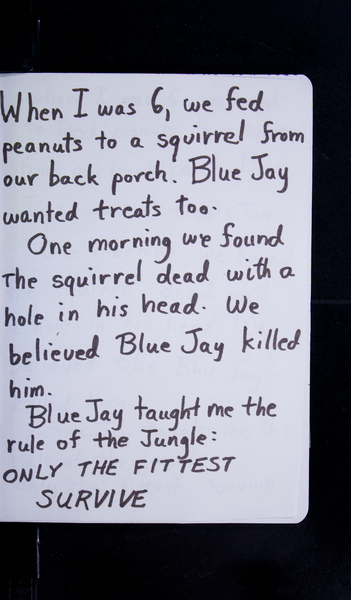 When I was 6, we fed
peanuts to a squirrel from
our back porch. Blue Jay
wanted treats too.
One morning we found
The squirrel dead with a
hole in his head. We
believed Blue Jay killed
him.
Blue Jay taught me the
rule of the Jungle:
ONLY THE FITTEST
SURVIVE